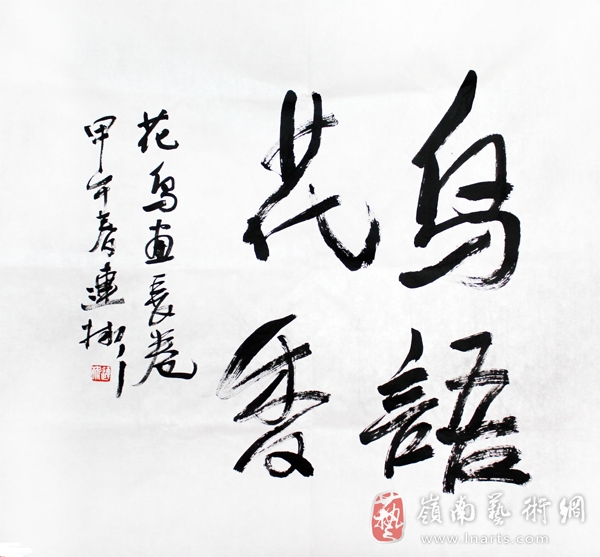 鳥語
花香
花鳥畫長卷
甲午春連撤
嶺南藝術網
www.lnarts.com